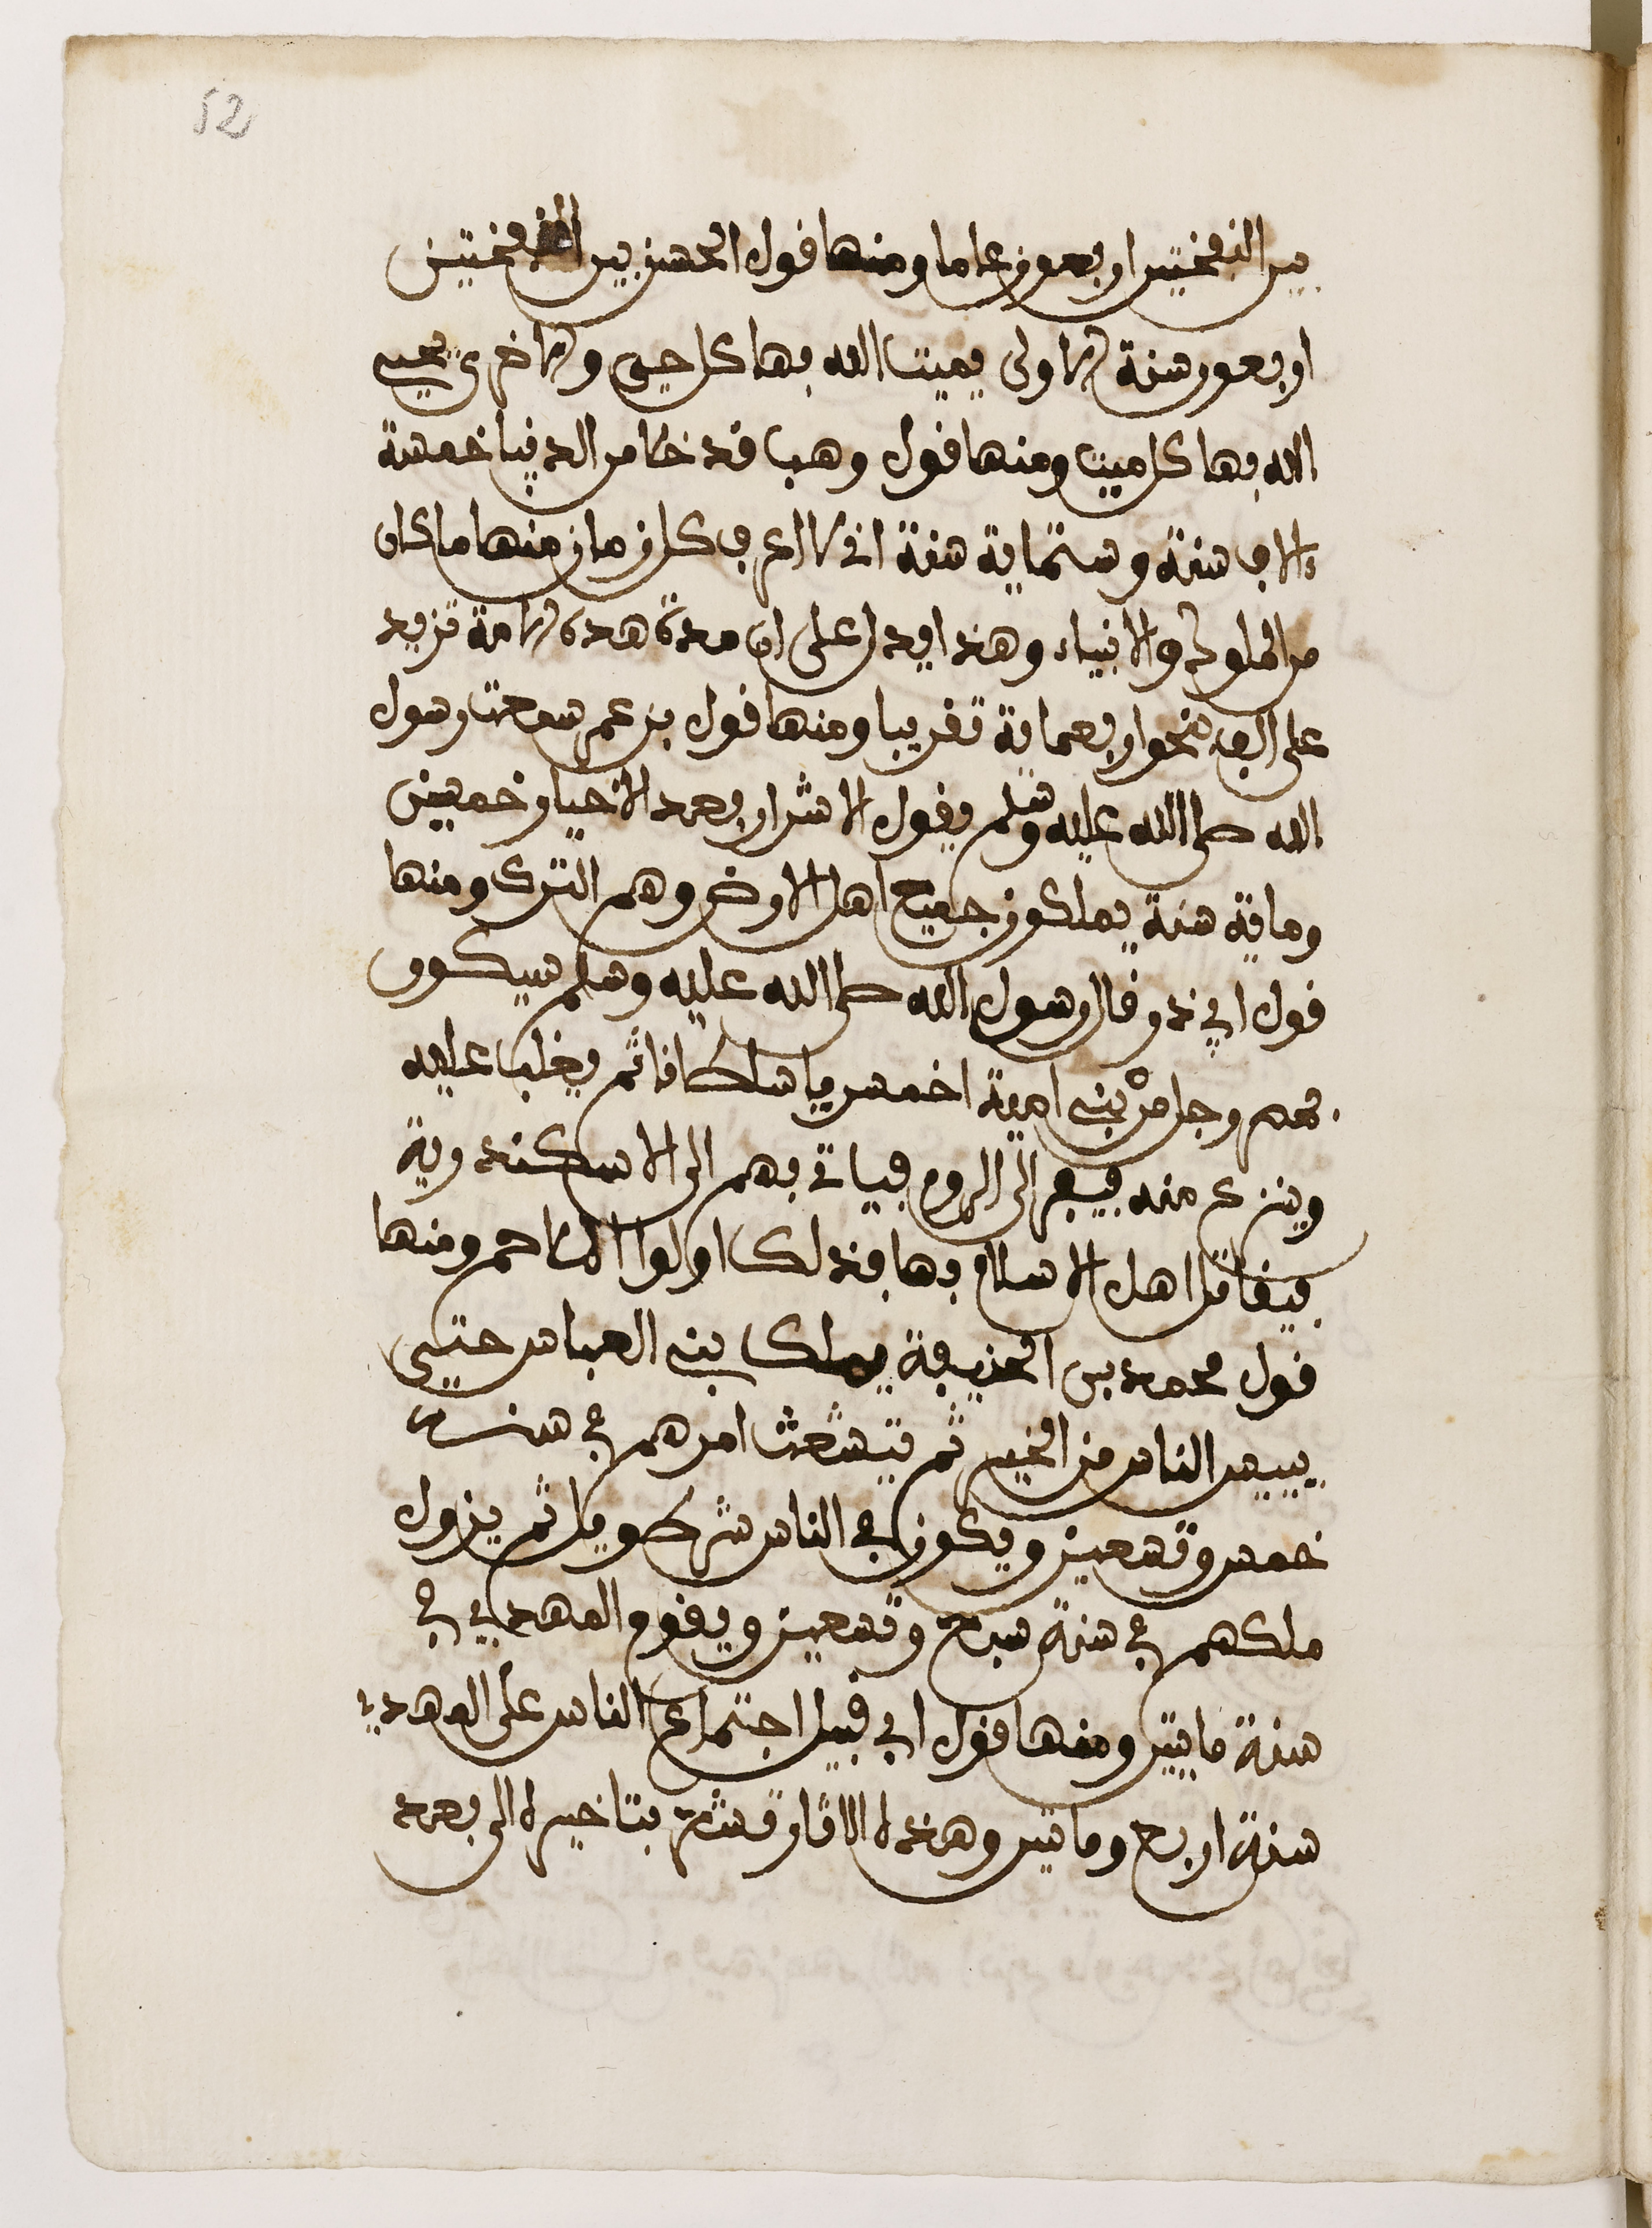 52
بين النفختين اربعون عاما ومنها قول الحسن بين النفختين
اربعون سنة الاولى يميت الله بها كل حي والاخرى يحيي
الله بها كل ميت ومنها قول وهب قد خلا من الدنيا خمسة
ءالاف سنة وستماية سنة اني لا اعرف كل زمان منها ما كان
من الملوك والانبياء وهذا يدل على ان مدة هذه الامة تزيد
على الف بنحو اربعماية تقريبا ومنها قول بن عمر سمعت رسول
الله صلى الله عليه وسلم يقول الاشرار بعد الاخيار خمسين
وماية سنة يملكون جميع اهل الارض وهم الترك ومنها
قول ابي ذر قال رسول الله صلى الله عليه وسلم سيكون
بمصر رجل من بني امية اخنس يلي سلطانا ثم يغلب عليه
وينزع منه فيفر الى الروم فياتي بهم الى الاسكندرية
فيقاتل اهل الاسلام بها فذلك اول الملاحم ومنها
قول محمد بن الحنيفة يملك بني العباس حتى
ييبس الناس من الخير ثم يتشعث امرهم في سنة
خمس وتسعين ويكون في الناس شر طويل ثم يزول
ملكهم في سنة سبع وتسعين ويقوم المهدي في
سنة مايتين ومنها قول ابي قبيل اجتماع الناس على المهدي
سنة اربع وماتين وهذه الاثار تشعر بتاخيره الى بعد